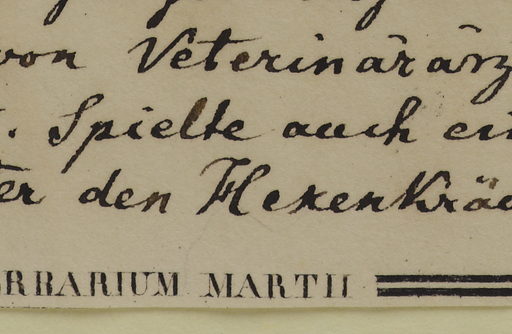 von Veterinärärz
. Spielte auch ei
ter den Hexenkräu
ERBARIUM MARTII